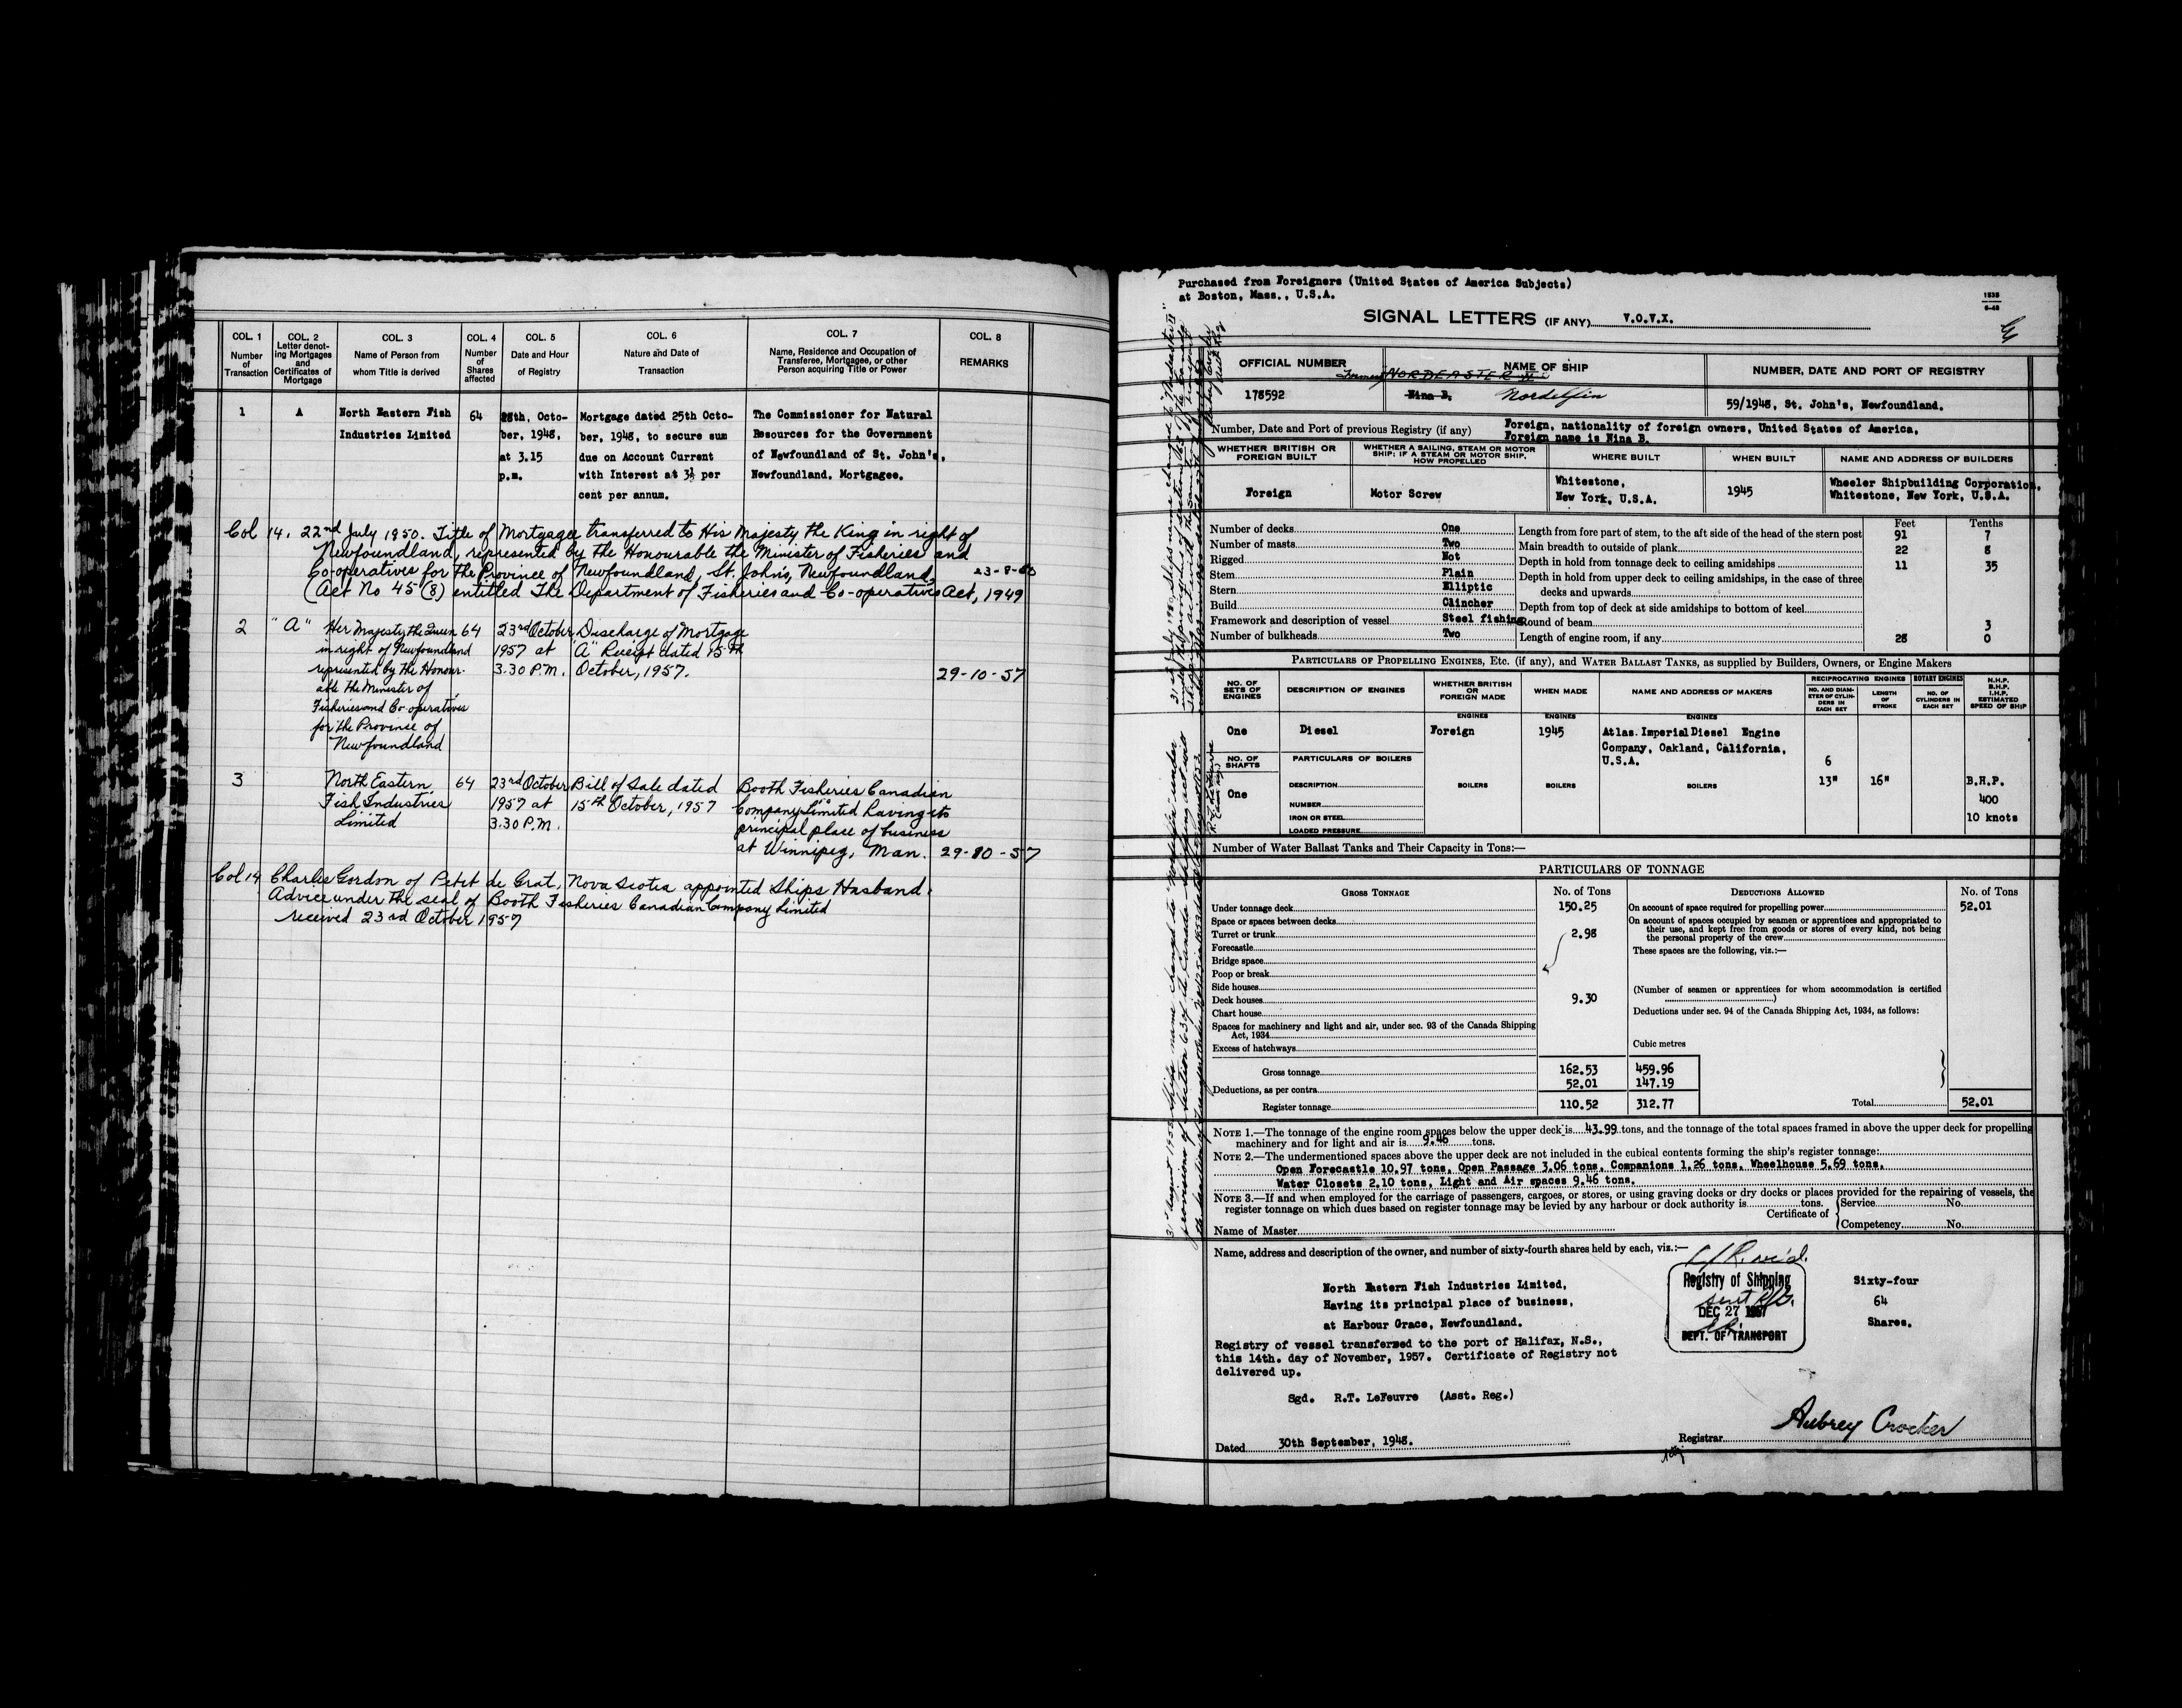 COL. 1 COL. 2 COL. 3 COL. 4 COL. 5 COL. 6 COL. 7 COL. 8
Number of Transaction
Letter denoting Mortgages and Certificates of Mortgage
Name of Person from whom Title is derived
Number of Shares affected
Date and Hour of Registry
Nature and Date of Transaction
Name, Residence and Occupation of Transferee, Mortgagee, or other Person acquiring Title or Power
REMARKS
1 A
North Eastern Fish
Industries Limited
64
28th, Octo-
ber, 1948,
at 3.15
p.m.
Mortgage dated 25th Octo-
ber, 1948, to secure sum
due on Account Current
with Interest at 3½ per
cent per annum.
The Commissioner for Natural
Resources for the Government
of Newfoundland of St. John's,
Newfoundland. Mortgagee.
Col 14. 22nd July 1950. Title of Mortgagee transferred to His Majesty the King in right of
Newfoundland, represented by the Honourable the Minister of Fisheries and
Co-operatives for the Province of Newfoundland, St. John's, Newfoundland,
(Act No 45 (8) entitled The Department of Fisheries and Co-operatives Act, 1949
2 "A"
Her Majesty the Queen
in right of Newfoundland
represented by the Honour-
able the Minister of
Fisheries and Co-operatives
for the Province of
Newfoundland
64
23rd October
1957 at
3.30 P.M.
Discharge of Mortgage
"A" Receipt dated 15th
October, 1957.
29-10-57
3
North Eastern
Fish Industries
Limited
64
23rd October
1957 at
3.30 P.M.
Bill of Sale dated
15th October, 1957
Booth Fisheries Canadian
Company Limited having its
principal place of business
at Winnipeg, Man.
29-10-57
Col 14 Charles Gordon of Petit de Grat, Nova Scotia appointed Ships Husband.
Advice under the seal of Booth Fisheries Canadian Company Limited
received 23rd October 1957
Purchased from Foreigners (United States of America Subjects)
at Boston, Mass., U.S.A.
SIGNAL LETTERS (IF ANY) V.O.V.X.
OFFICIAL NUMBER
178592
NAME OF SHIP
Formerly NORDEASTER II
Nina B. Nordelfin
NUMBER, DATE AND PORT OF REGISTRY
59/1948, St. John's, Newfoundland.
Number, Date and Port of previous Registry (if any)
Foreign, nationality of foreign owners, United States of America,
Foreign name is Nina B.
WHETHER BRITISH OR FOREIGN BUILT
Foreign
WHETHER A SAILING, STEAM OR MOTOR SHIP; IF A STEAM OR MOTOR SHIP, HOW PROPELLED
Motor Screw
WHERE BUILT
Whitestone,
New York, U.S.A.
WHEN BUILT
1945
NAME AND ADDRESS OF BUILDERS
Wheeler Shipbuilding Corporation,
Whitestone, New York, U.S.A.
Number of decks One
Number of masts Two
Rigged Not
Stem Plain
Stern Elliptic
Build Clincher
Framework and description of vessel Steel fishing
Number of bulkheads Two
Feet Tenths
Length from fore part of stem, to the aft side of the head of the stern post 91 7
Main breadth to outside of plank 22 8
Depth in hold from tonnage deck to ceiling amidships 11 35
Depth in hold from upper deck to ceiling amidships, in the case of three
decks and upwards
Depth from top of deck at side amidships to bottom of keel
Round of beam 3
Length of engine room, if any 28 0
PARTICULARS OF PROPELLING ENGINES, ETC. (if any), and WATER BALLAST TANKS, as supplied by Builders, Owners, or Engine Makers
NO. OF SETS OF ENGINES
DESCRIPTION OF ENGINES
WHETHER BRITISH OR FOREIGN MADE
WHEN MADE
NAME AND ADDRESS OF MAKERS
RECIPROCATING ENGINES
ROTARY ENGINES
NO. AND DIAMETER OF CYLINDERS IN EACH SET
LENGTH OF STROKE
NO. OF CYLINDERS IN EACH SET
N.H.P. B.H.P. I.H.P. ESTIMATED SPEED OF SHIP
ENGINES ENGINES ENGINES
One Diesel Foreign 1945
Atlas Imperial Diesel Engine
Company, Oakland, California,
U.S.A.
6
NO. OF SHAFTS
One
PARTICULARS OF BOILERS
DESCRIPTION
NUMBER
IRON OR STEEL
LOADED PRESSURE
BOILERS BOILERS BOILERS
13" 16"
B.H.P.
400
10 knots
Number of Water Ballast Tanks and Their Capacity in Tons:—
PARTICULARS OF TONNAGE
GROSS TONNAGE No. of Tons
Under tonnage deck 150.25
Space or spaces between decks
Turret or trunk 2.98
Forecastle
Bridge space
Poop or break
Side houses
Deck houses 9.30
Chart house
Spaces for machinery and light and air, under sec. 93 of the Canada Shipping
Act, 1934
Excess of hatchways
Cubic metres
Gross tonnage 162.53 459.96
Deductions, as per contra 52.01 147.19
Register tonnage 110.52 312.77
DEDUCTIONS ALLOWED No. of Tons
On account of space required for propelling power 52.01
On account of spaces occupied by seamen or apprentices and appropriated to
their use, and kept free from goods or stores of every kind, not being
the personal property of the crew
These spaces are the following, viz.:—
(Number of seamen or apprentices for whom accommodation is certified
)
Deductions under sec. 94 of the Canada Shipping Act, 1934, as follows:
Total 52.01
NOTE 1.—The tonnage of the engine room spaces below the upper deck is 43.99 tons, and the tonnage of the total spaces framed in above the upper deck for propelling
machinery and for light and air is 9.46 tons.
NOTE 2.—The undermentioned spaces above the upper deck are not included in the cubical contents forming the ship's register tonnage:
Open Forecastle 10.97 tons, Open Passage 3.06 tons, Companions 1.26 tons, Wheelhouse 5.69 tons,
Water Closets 2.10 tons, Light and Air spaces 9.46 tons.
NOTE 3.—If and when employed for the carriage of passengers, cargoes, or stores, or using graving docks or dry docks or places provided for the repairing of vessels, the
register tonnage on which dues based on register tonnage may be levied by any harbour or dock authority is tons.
Name of Master
Certificate of Service No.
Competency No.
Name, address and description of the owner, and number of sixty-fourth shares held by each, viz.:—
North Eastern Fish Industries Limited,
Having its principal place of business,
at Harbour Grace, Newfoundland.
Registry of Shipping
DEC 27 1957
DEPT. OF TRANSPORT
Sixty-four
64
Shares.
Registry of vessel transferred to the port of Halifax, N.S.,
this 14th. day of November, 1957. Certificate of Registry not
delivered up.
Sgd. R.T. LeFeuvre (Asst. Reg.)
Dated 30th September, 1948.
Registrar Aubrey Crocker